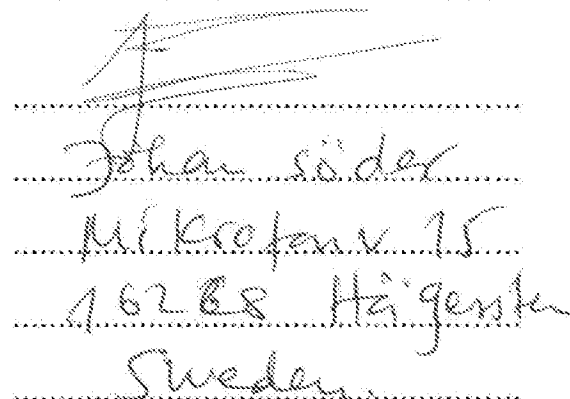 Johan Söder
Mikrofonv 15
Hägersten
Sweden.